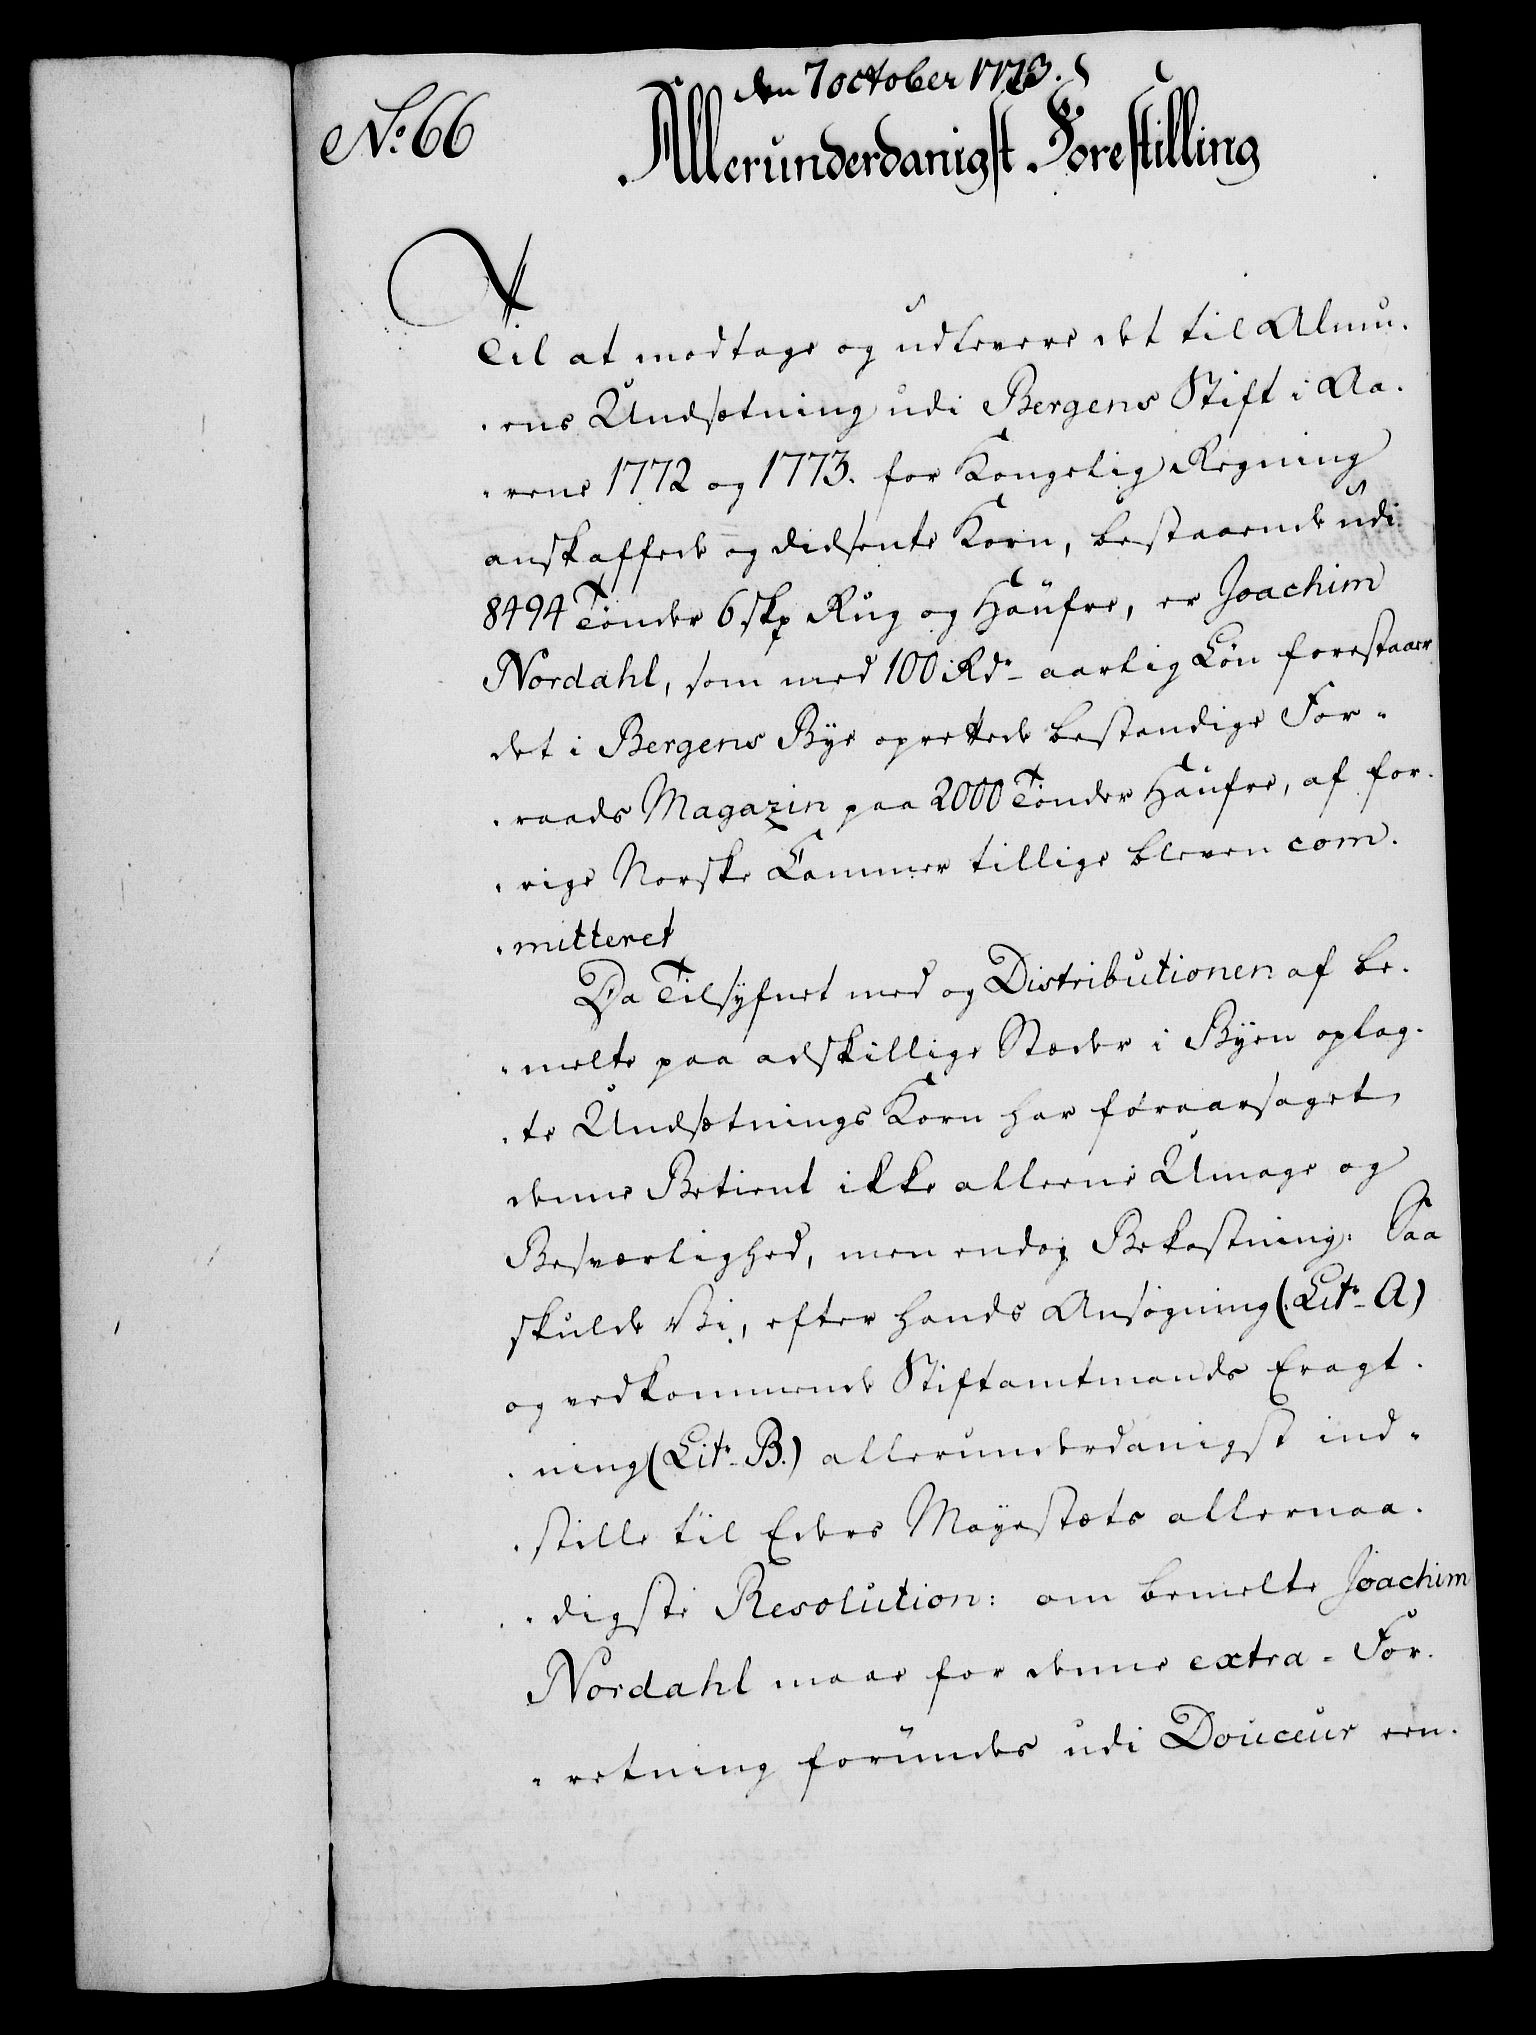 den 7 october 1773.
No. 66
Allerunderdanigst Forestilling
Til at modtage og udlevere det til Almu-
ens Undsætning udi Bergens Stift i Aa-
rene 1772 og 1773. for Kongelig Regning
anskaffede og didsente Korn, bestaaende udi
8494 Tønder 6 skp Rug og Haufre, er Joachim
Nordahl, som med 100 Rdr aarlig Løn forestaaer
det i Bergens Bye oprettede bestandige For-
raads Magazin paa 2000 Tønder Haufre, af for-
rige Norske Cammer tillige bleven com-
mitteret
Da Tilsyfnet med og Distributionen af be-
melte paa adskillige Stæder i Byen oplag-
te Undsætnings Korn har foraarsaget
denne Betient ikke alleene Umage og
Besværlighed, men endog Bekostning: Saa
skulde Vi, efter hands Ansøgning (Litr. A)
og vedkommende Stiftamtmands Eragt-
ning (Litr. B.) allerunderdanigst ind-
stille til Eders Mayestæts allernaa-
digste Resolution: om bemelte Joachim
Nordahl maae for denne extra-For-
retning forundes udi Douceur een-